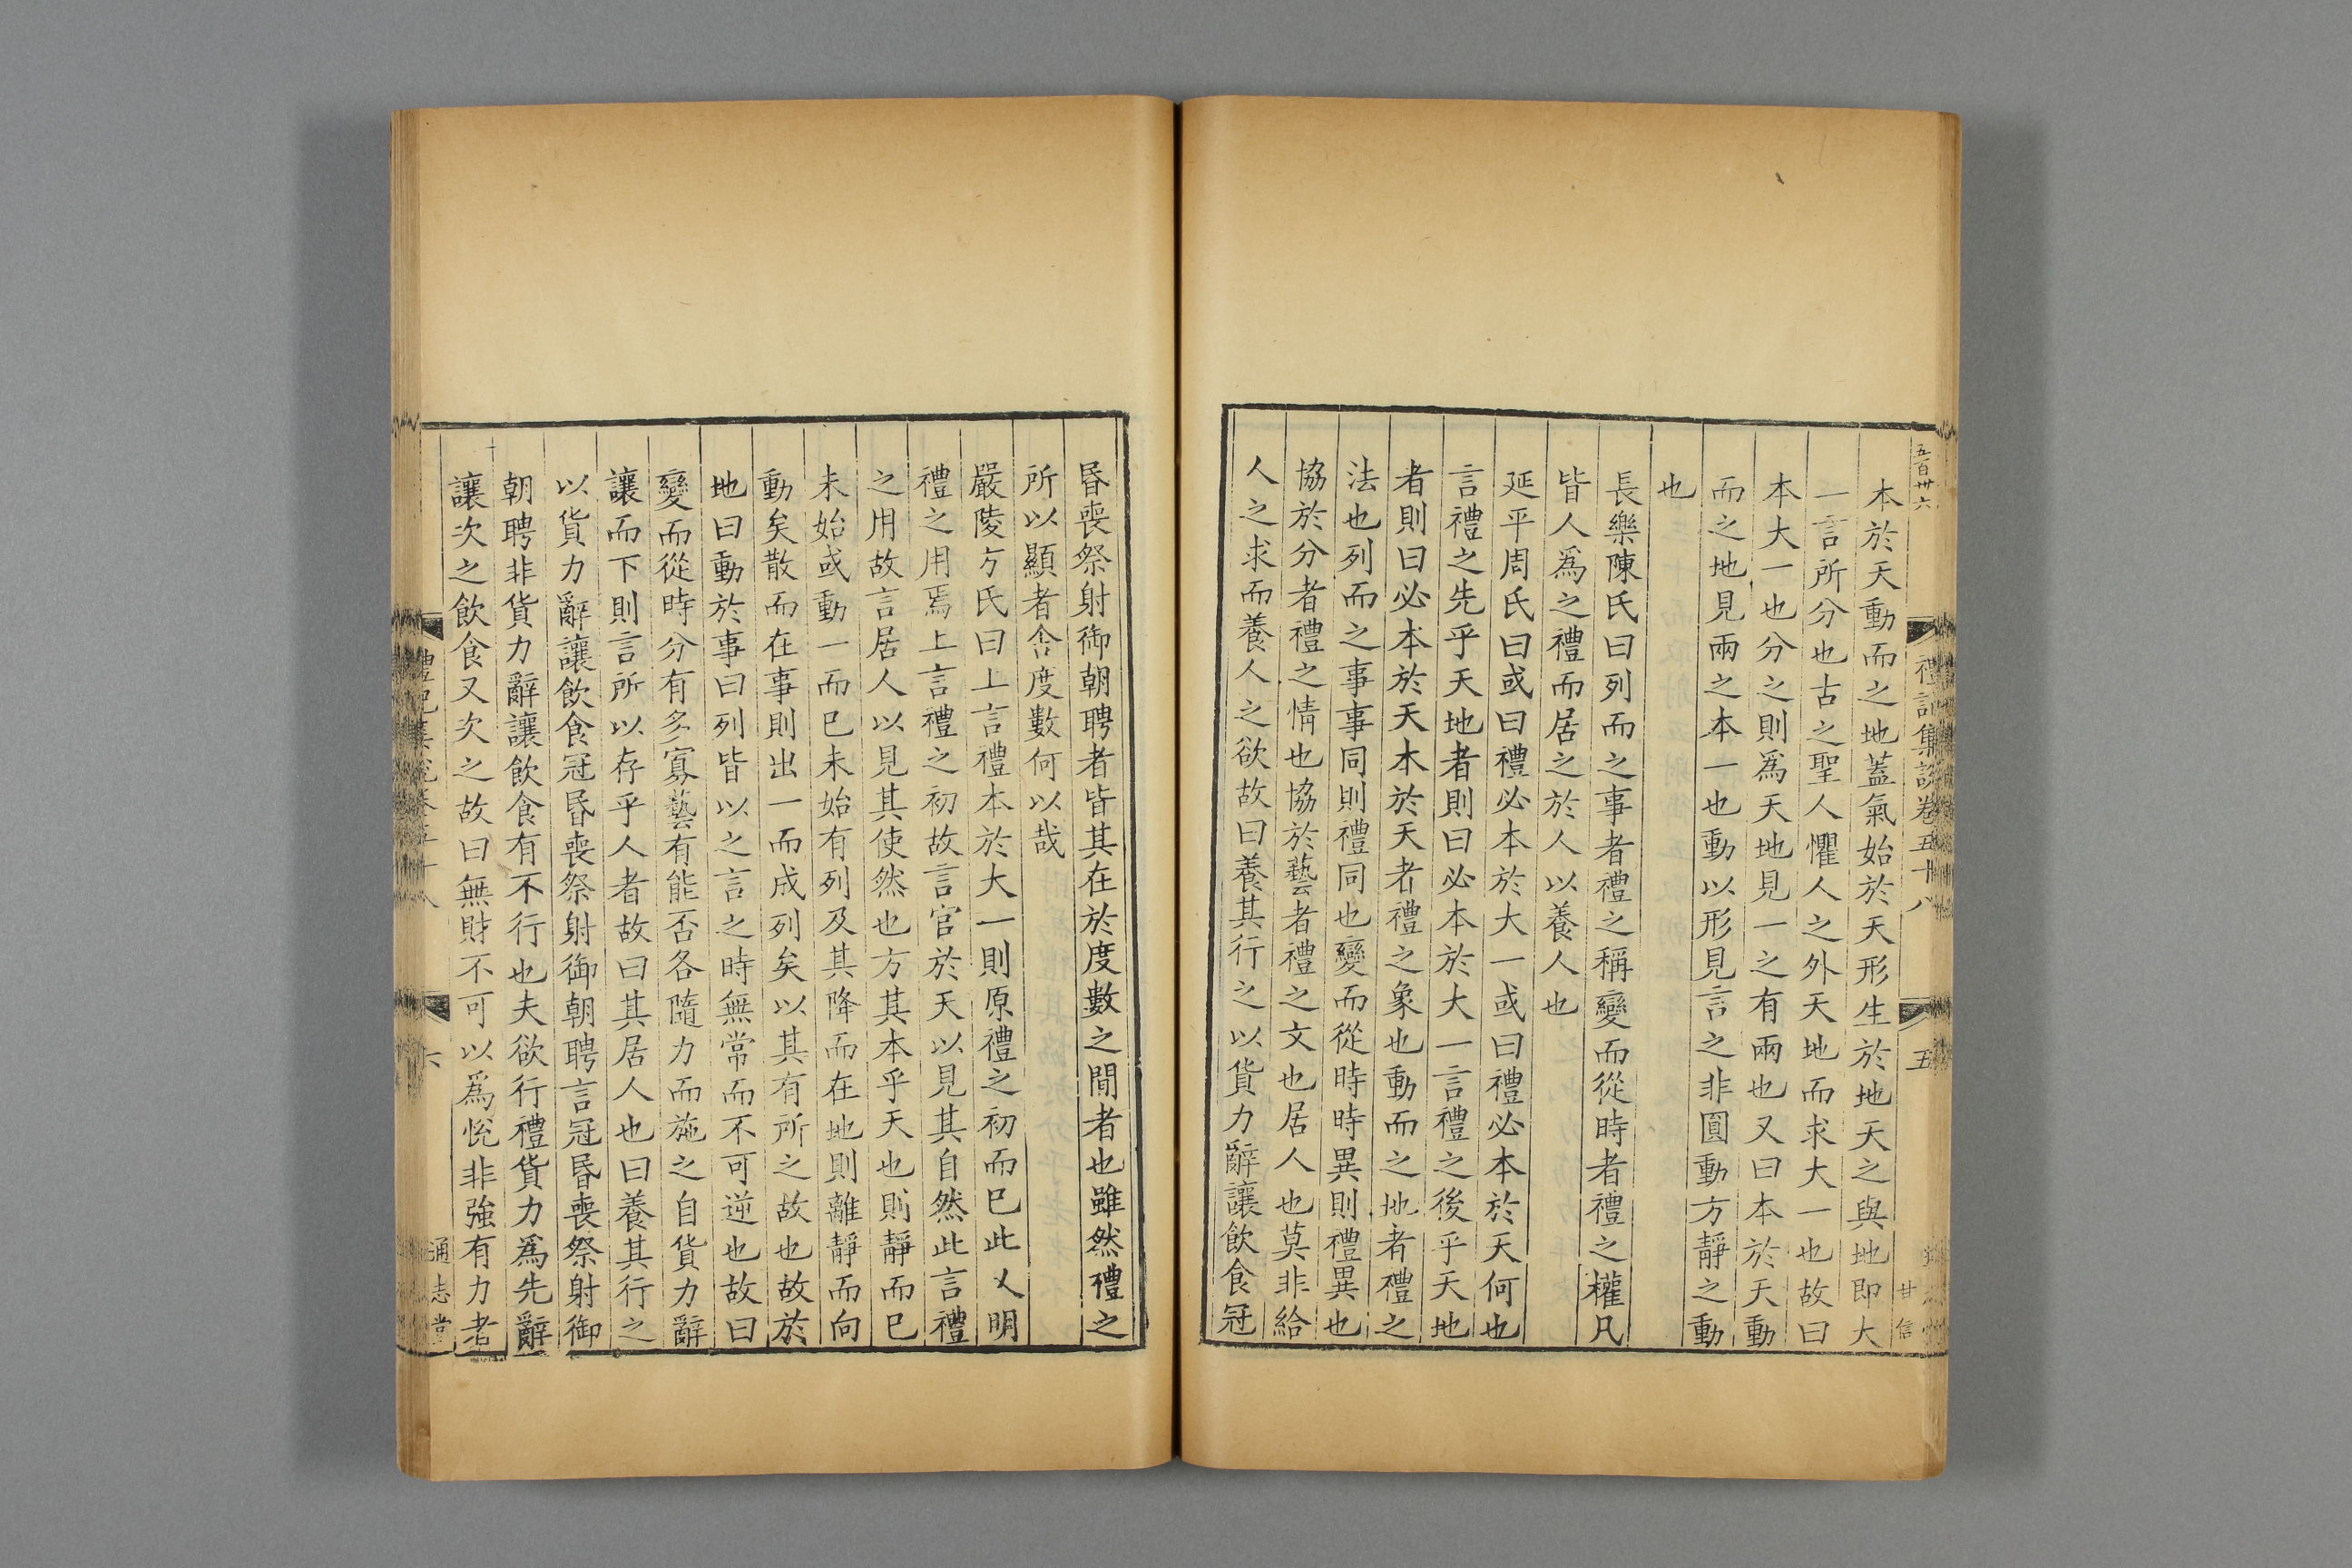 五百卅六
禮記集說卷五十八
五
甘信
本於天動而之地蓋氣始於天形生於地天之與地即大
一言所分也古之聖人懼人之外天地而求大一也故曰
本大一也分之則爲天地見一之有兩也又曰本於天動
而之地見兩之本一也動以形見言之非圓動方靜之動
也
長樂陳氏曰列而之事者禮之稱變而從時者禮之權凡
皆人爲之禮而居之於人以養人也
延平周氏曰或曰禮必本於大一或曰禮必本於天何也
言禮之先乎天地者則曰必本於大一言禮之後乎天地
者則曰必本於天本於天者禮之象也動而之地者禮之
法也列而之事事同則禮同也變而從時時異則禮異也
協於分者禮之情也協於藝者禮之文也居人也莫非給
人之求而養人之欲故曰養其行之以貨力辭讓飲食冠
昏喪祭射御朝聘者皆其在於度數之間者也雖然禮之
所以顯者舍度數何以哉
嚴陵方氏曰上言禮本於大一則原禮之初而已此又明
禮之用焉上言禮之初故言官於天以見其自然此言禮
之用故言居人以見其使然也方其本乎天也則靜而已
未始或動一而已未始有列及其降而在地則離靜而向
動矣散而在事則出一而成列矣以其有所之故也故於
地曰動於事曰列皆以之言之時無常而不可逆也故曰
變而從時分有多寡藝有能否各隨力而施之自貨力辭
讓而下則言所以存乎人者故曰其居人也曰養其行之
以貨力辭讓飲食冠昏喪祭射御朝聘言冠昏喪祭射御
朝聘非貨力辭讓飲食有不行也夫欲行禮貨力爲先辭
讓次之飲食又次之故曰無財不可以爲悅非強有力者
禮記集說卷五十八
六
通志堂